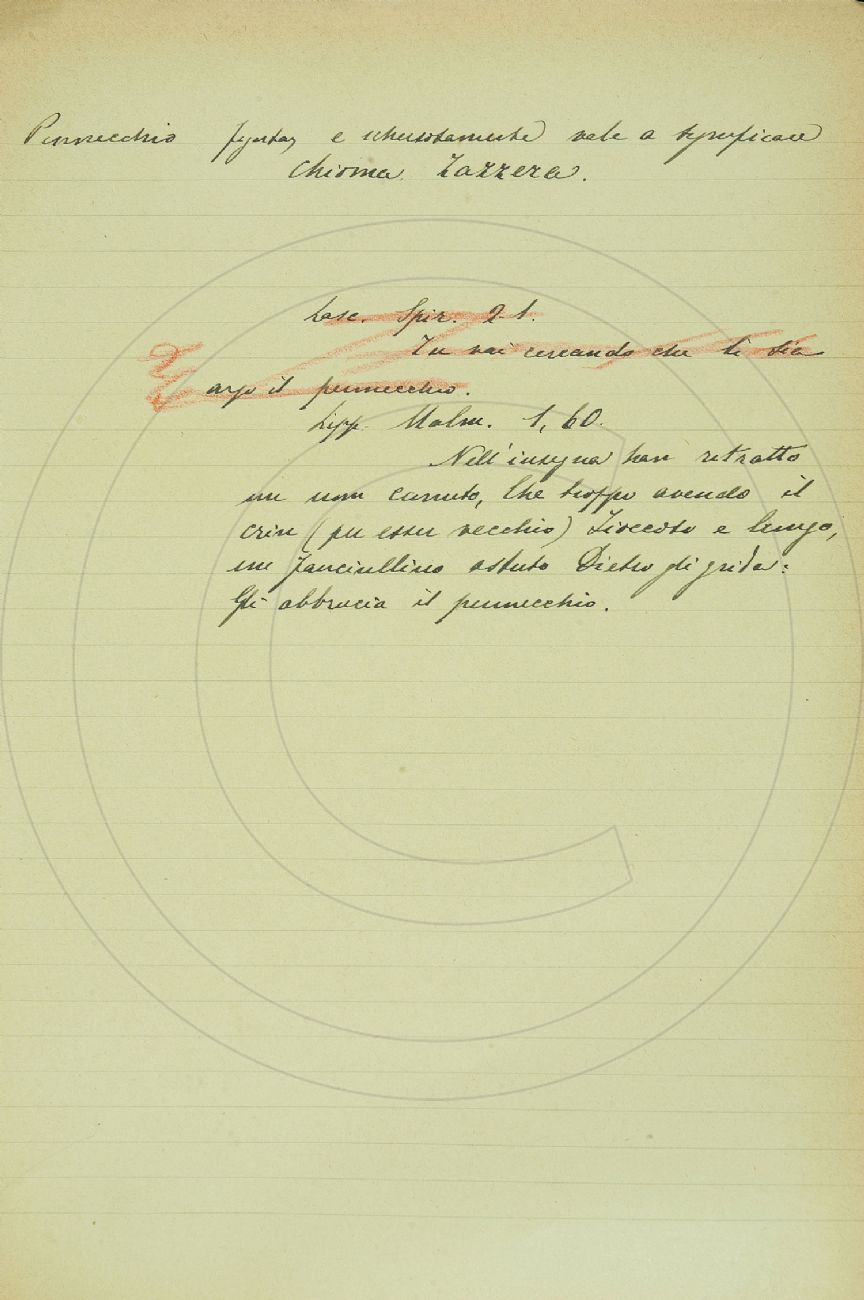 Pennecchio figurtas e scherzosamente vale a significare
Chioma Zazzera.
Lasc. Spir. 2 1.
Tu vai cercando che ti sia
arso il pennecchio.
Lipp. Malm. 1, 60.
Nell'insegna han ritratto
un uom canuto, Che troppo avendo il
crin (per esser vecchio) Fioccoso e lungo,
un fanciullino astuto Dietro gli grida:
Gli abbrucia il pennecchio.